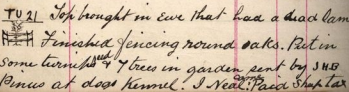 TU 21 Top brought in Ewe that had a dead Lam
Finished fencing round oaks. Put in
some turnip seed & 7 trees in garden sent by J.H.B.
Pinus at dogs Kennel. J Neal came Paid Sheep tax